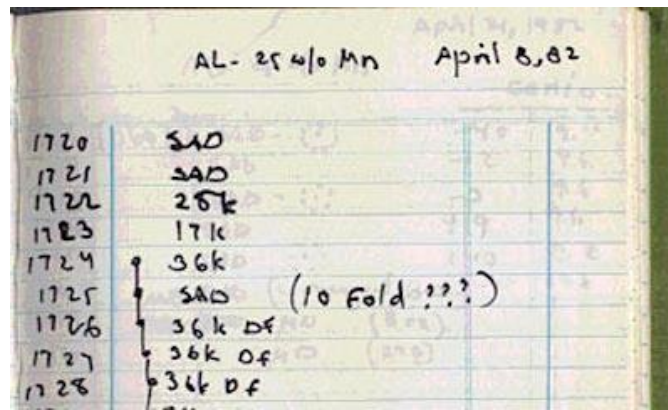 AL-25 w/o Mn April 8, 82
1720 SAD
1721 SAD
1722 25k
1723 17k
1724 36k
1725 SAD (10 Fold ???)
1726 36k DF
1727 36k DF
1728 36k DF